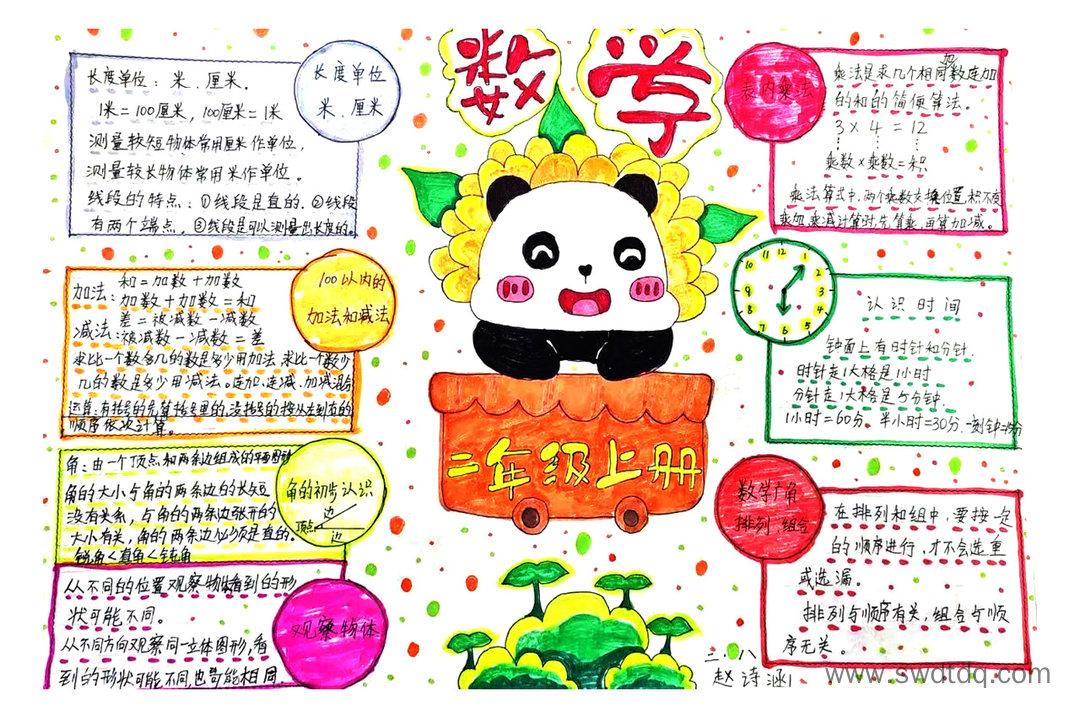 数学
二年级上册
长度单位
米、厘米
长度单位：米、厘米.
1米=100厘米，100厘米=1米
测量较短物体常用厘米作单位，
测量较长物体常用米作单位。
线段的特点：①线段是直的.②线段
有两个端点，③线段是可以测量出长度的。
100以内的
加法和减法
加法：和=加数+加数
加数+加数=和
减法：差=被减数-减数
被减数-减数=差
求比一个数多几的数是多少用加法.求比一个数少
几的数是多少用减法。连加、连减、加减混合
运算：有括号的先算括号里的，没括号的按从左到右的
顺序依次计算。
角的初步认识
边
顶点
边
角：由一个顶点和两条边组成的平面图形
角的大小与角的两条边的长短
没有关系，与角的两条边张开的
大小有关，角的两条边必须是直的。
锐角<直角<钝角
观察物体
从不同的位置观察物体看到的形
状可能不同。
从不同方向观察同一立体图形，看
到的形状可能不同，也可能相同.
表内乘法
乘法是求几个相同加数连加
的和的简便算法。
3×4=12
乘数×乘数=积
乘法算式中，两个乘数交换位置，积不变
乘加、乘减计算时，先算乘，再算加减。
12 1 2 3 4 5 6 7 8 9 10 11
认识时间
钟面上有时针和分针.
时针走1大格是1小时
分针走1大格是5分钟.
1小时=60分、半小时=30分、一刻钟=15分
数学广角
排列、组合
在排列和组中，要按一定
的顺序进行，才不会选重
或选漏。
排列与顺序有关，组合与顺
序无关。
二.八
赵诗涵
www.swdtdq.com